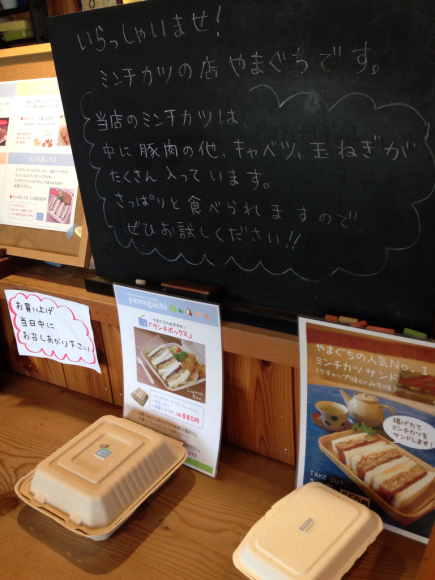 いらっしゃいませ!
ミンチカツの店 やまぐちです。
当店のミンチカツは、
中に豚肉の他、キャベツ、玉ねぎが
たくさん入っています。
さっぱりと食べられますので、
ぜひお試しください!!
ランチボックス
お買い上げ
当日中に
お召しあがり下さい
yamaguchi
やまぐちのおすすめ!
「ランチボックス」
880円
やまぐちの人気No.1
ミンチカツサンド
(ケチャップ味orみそ味)
揚げたて
ミンチカツを
サンドします!
TAKE OUT